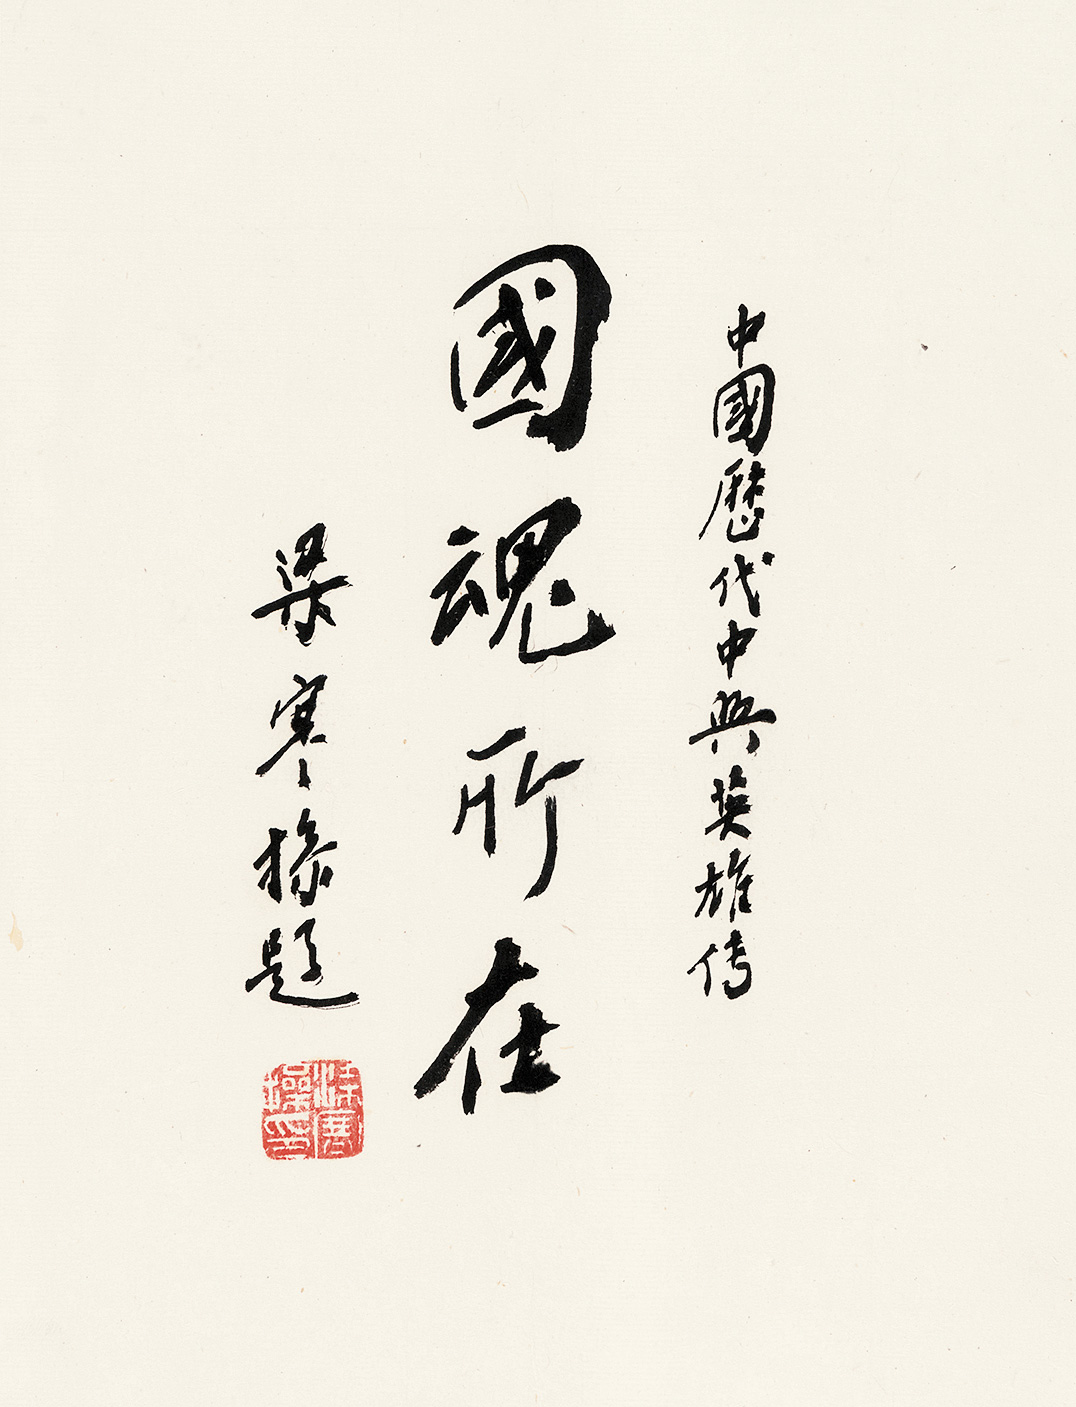 中國歷代中興英雄传
國魂所在
梁寒操題
梁寒操印